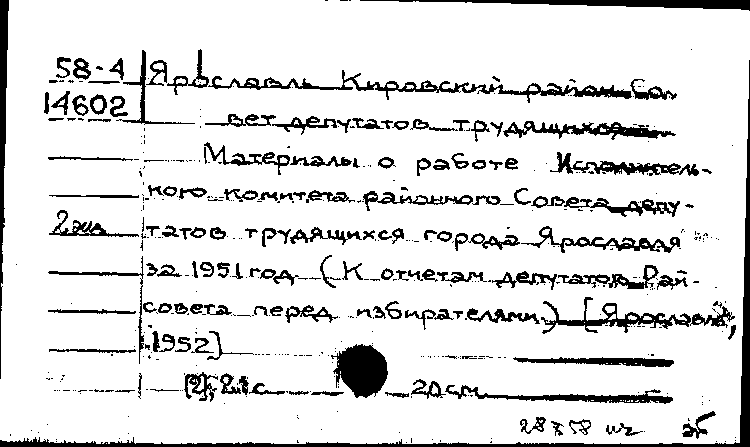 58-4 Ярославль Кировский район Со-
14602 вет депутатов трудящихся
Материалы о работе Исполнитель-
ного комитета районного Совета депу-
2 экз татов трудящихся города Ярославля
за 1951 год. (К отчетам депутатов Рай-
совета перед избирателями.) [Ярославль,
1952]
[2], 21 с 20 см.